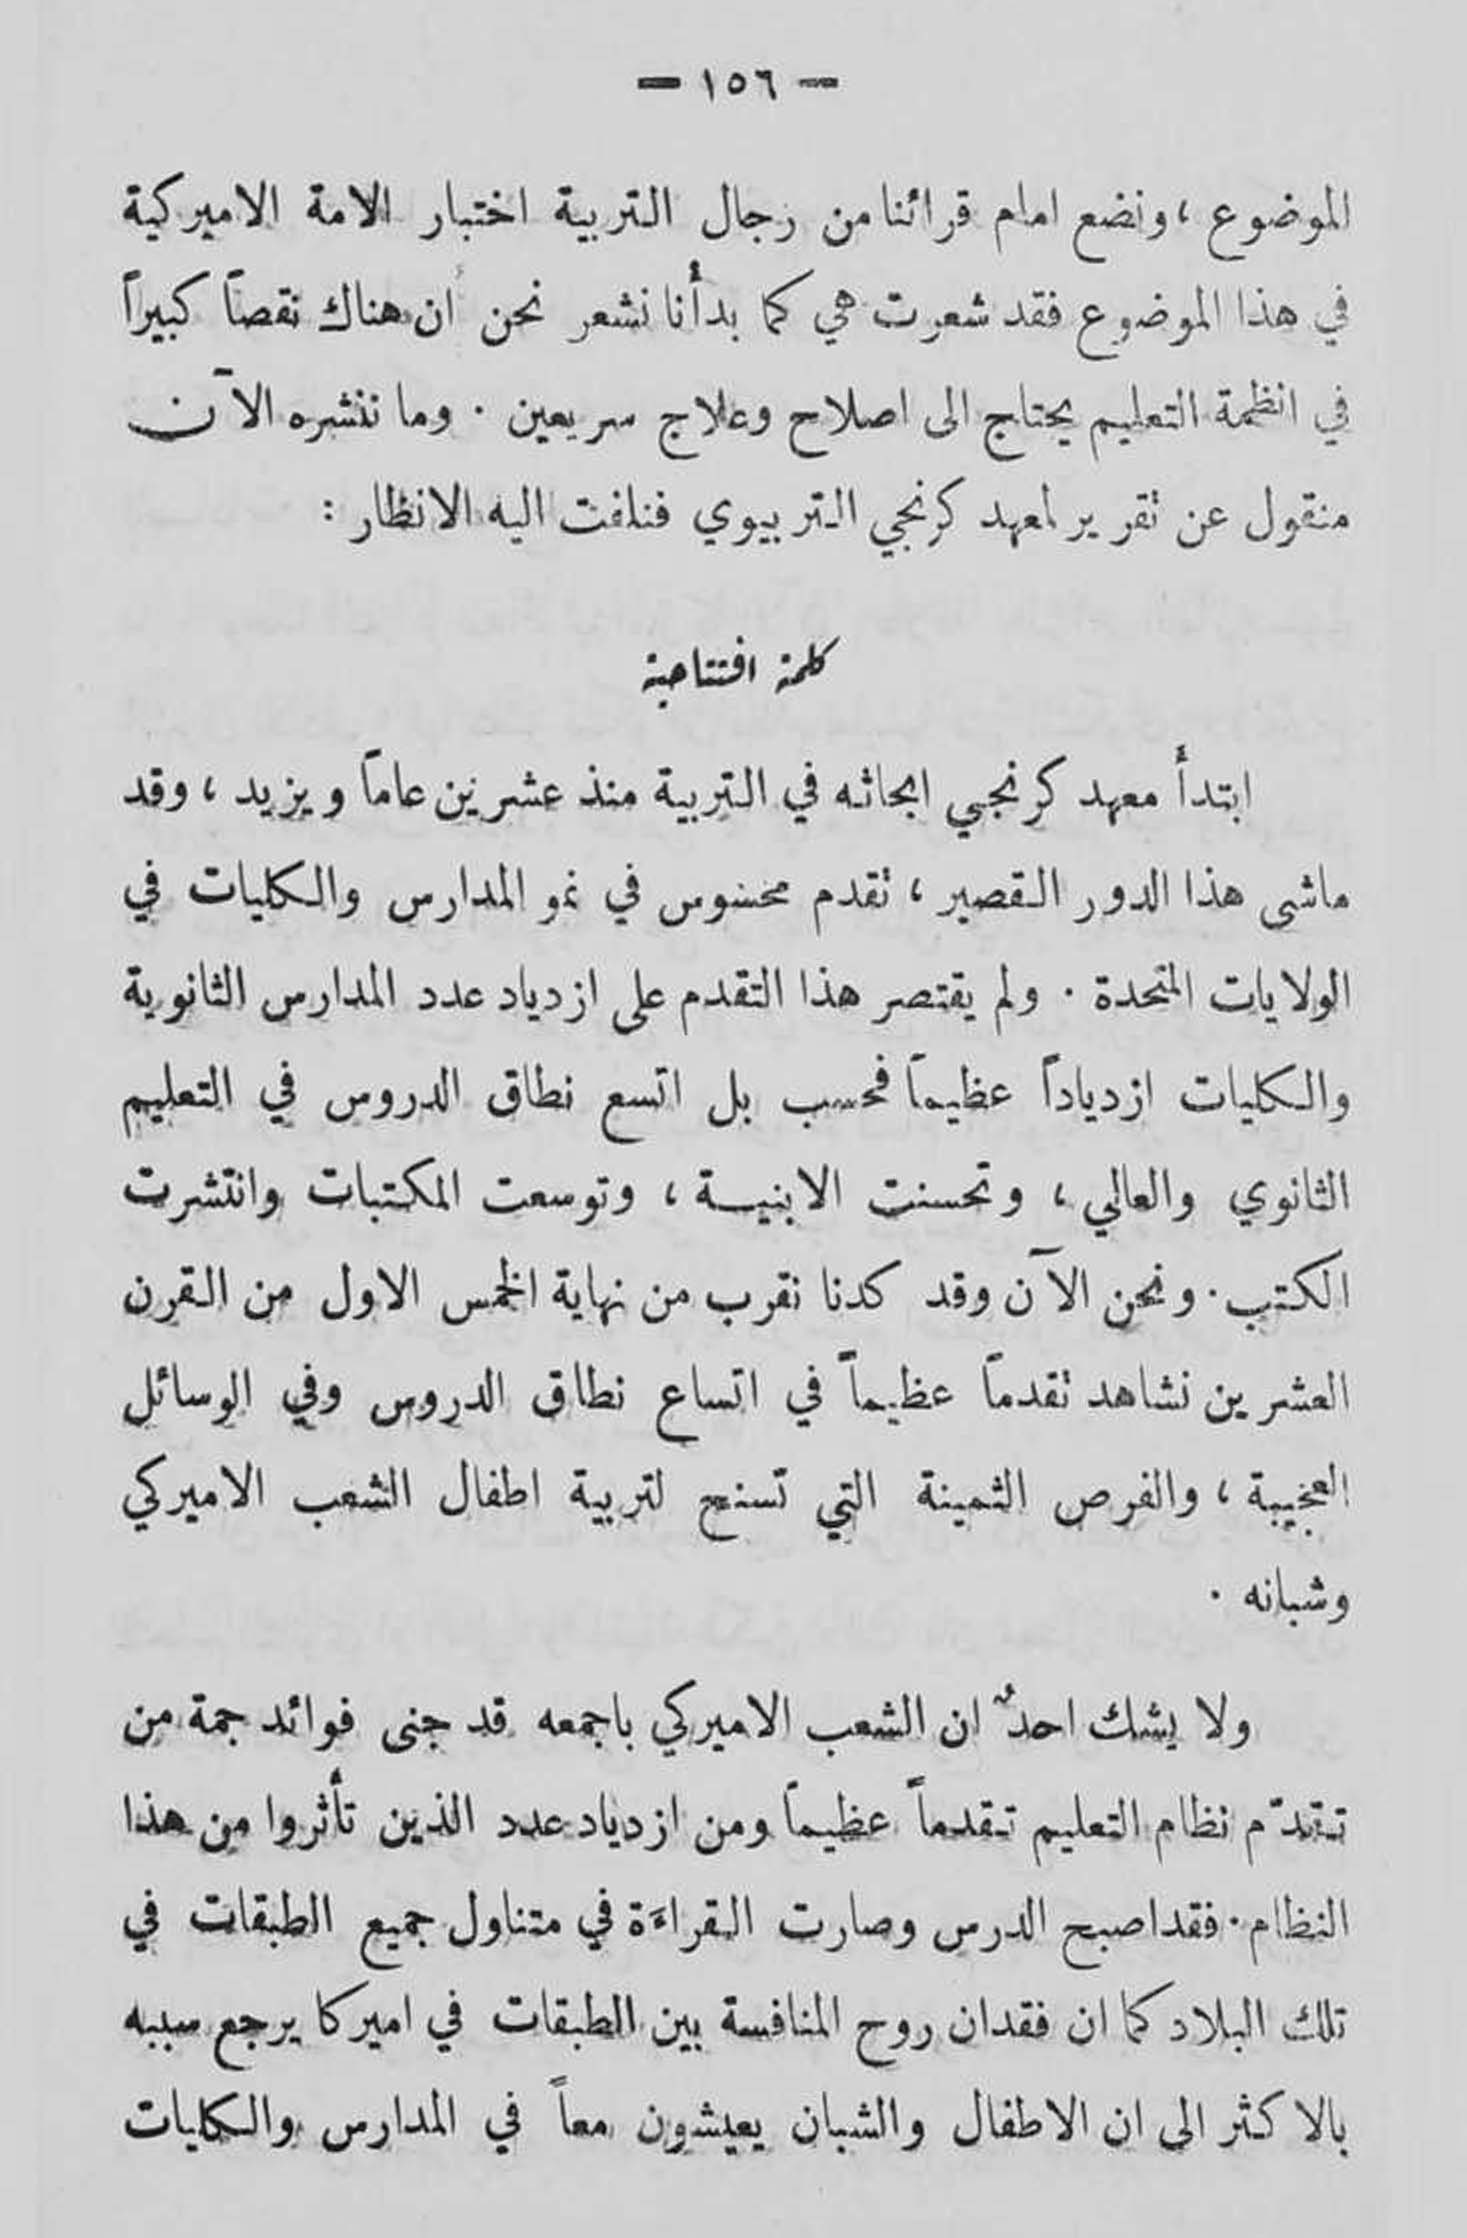 — ١٥٦ —
الموضوع ، ونضع امام قرائنا من رجال التربية اختبار الامة الاميركية
في هذا الموضوع فقد شعرت هي كما بدأنا نشعر نحن أن هناك نقصاً كبيراً
في انظمة التعليم يحتاج الى اصلاح وعلاج سريعين . وما ننشره الآن
منقول عن تقرير لمعهد كرنجي التربيوي فنلفت اليه الانظار :
كلمة افتتاحية
ابتدأ معهد كرنجي ابحاثه في التربية منذ عشرين عاماً ويزيد ، وقد
ماشى هذا الدور القصير ، تقدم محسوس في نمو المدارس والكليات في
الولايات المتحدة . ولم يقتصر هذا التقدم على ازدياد عدد المدارس الثانوية
والكليات ازدياداً عظيماً فحسب بل اتسع نطاق الدروس في التعليم
الثانوي والعالي ، وتحسنت الابنية ، وتوسعت المكتبات وانتشرت
الكتب . ونحن الآن وقد كدنا نقرب من نهاية الخمس الاول من القرن
العشرين نشاهد تقدماً عظيماً في اتساع نطاق الدروس وفي الوسائل
العجيبة ، والفرص الثمينة التي تسنح لتربية اطفال الشعب الاميركي
وشبانه .
ولا يشك احدٌ ان الشعب الاميركي باجمعه قد جنى فوائد جمة من
تقدّم نظام التعليم تقدماً عظيماً ومن ازدياد عدد الذين تأثروا من هذا
النظام . فقد اصبح الدرس وصارت القراءَة في متناول جميع الطبقات في
تلك البلاد كما ان فقدان روح المنافسة بين الطبقات في اميركا يرجع سببه
بالاكثر الى ان الاطفال والشبان يعيشون معاً في المدارس والكليات